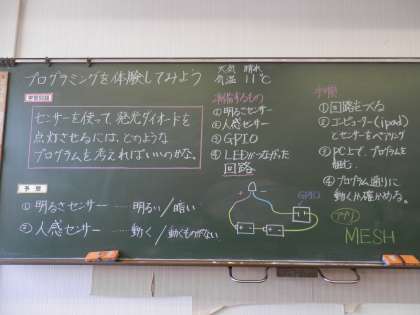 プログラミングを体験してみよう
天気 晴れ
気温 11℃
学習問題
センサーを使って、発光ダイオードを
点灯させるには、どのような
プログラムを考えればいいのかな。
予想
①明るさセンサー ・・・・ 明るい/暗い
②人感センサー ・・・・ 動く/動くものがない
準備するもの
①明るさセンサー
②人感センサー
③GPIO
④LEDがつながった
回路
GPIO
+
-
手順
①回路をつくる
②コンピューター(ipad)
とセンサーをペアリング
③PC上で、プログラムを
組む。
④プログラム通りに
動くか確かめる。
アプリ
MESH